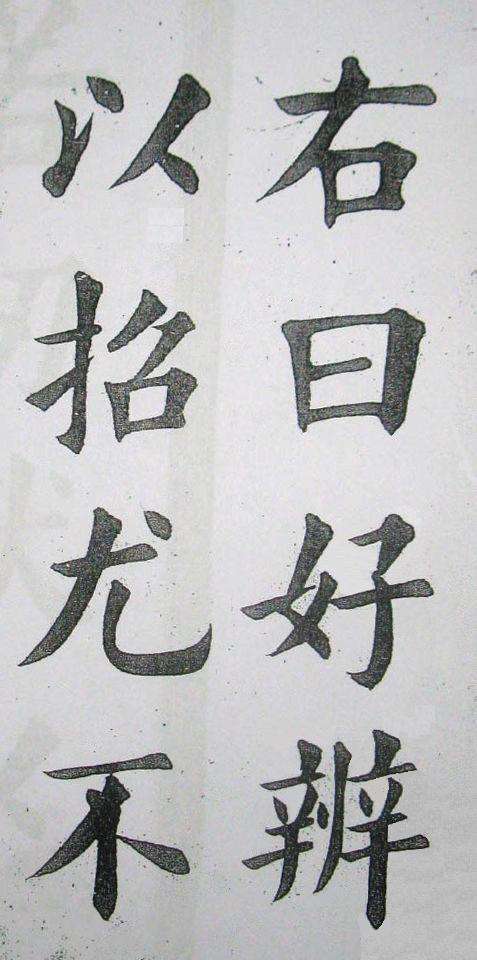 右曰好辨
以招尤不